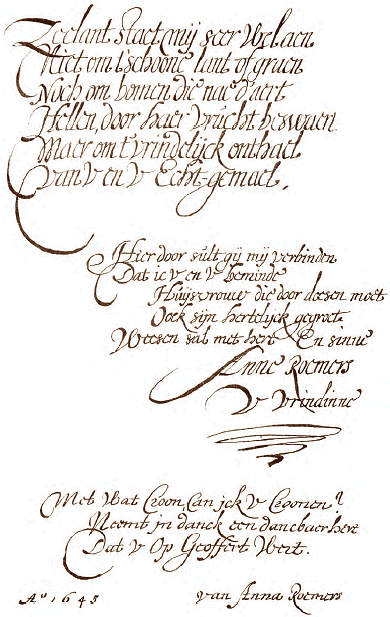 Zeelant staet mij seer wel aen
Niet om t'schoone lant of graen
Noch om bomen die nae d'aert
Hellen, door haer vrucht beswaert
Maer om t' vrindelijck onthael
van V en V Echt-gemael.
Hier door sult gij mij verbinden
Dat ic V en V beminde
Huijsvrouw die door deesen moet
Oock sijn hertelijck gegroet
Weesen sal met hert En sinne
Anne Roemers
V Vrindinne
Met Wat Croon Can jck V Croonen?
Neemt jn danck een danckbaer hert
Dat V Op Geoffert Wert.
A° 1645 van Anna Roemers